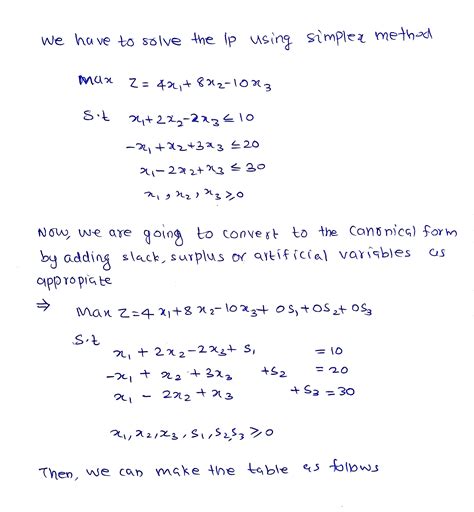 We have to solve the lp using simplex method
Max Z = 4x₁ + 8x₂ - 10x₃
S.t x₁ + 2x₂ - 2x₃ ≤ 10
-x₁ + x₂ + 3x₃ ≤ 20
x₁ - 2x₂ + x₃ ≤ 30
x₁, x₂, x₃ ≥ 0
Now, we are going to convert to the canonical form
by adding slack, surplus or artificial variables as
appropiate
⇒ Max Z = 4x₁ + 8x₂ - 10x₃ + 0S₁ + 0S₂ + 0S₃
S.t
x₁ + 2x₂ - 2x₃ + S₁ = 10
-x₁ + x₂ + 3x₃ + S₂ = 20
x₁ - 2x₂ + x₃ + S₃ = 30
x₁, x₂, x₃, S₁, S₂, S₃ ≥ 0
Then, we can make the table as follows